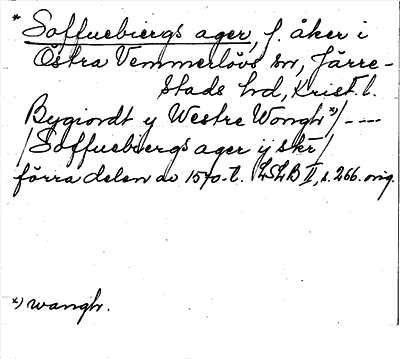 * Soffuebiergs ager, f. åker i
Östra Vemmerlövs sn, Järre-
stads hd, Krist. l.
Bygiordt y Westre Wongh*)/----
/Soffuebiergs ager ij skr/
förra delen av 1570-t. LSLB II, s. 266. orig.
*) wangh.